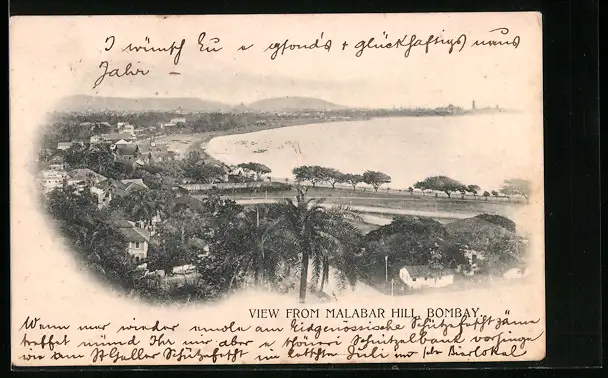 I wünsch Eu e gfond's + glückhaftigs neus
Jahr –
VIEW FROM MALABAR HILL, BOMBAY.
Wenn mer wieder emole am Eidgenössische Schützefest
treffet münd Ihr mer aber e schöneri Schützelbank
wie am St. Galler Schützefest im Juli vor em Bierlokal